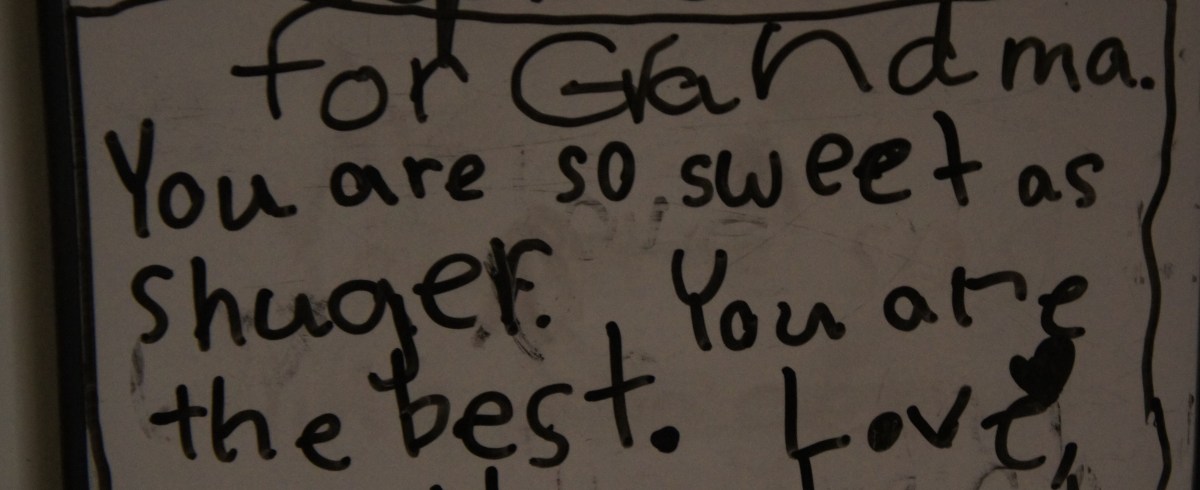 for Grandma.
You are so sweet as
shuger. You are
the best. Love,